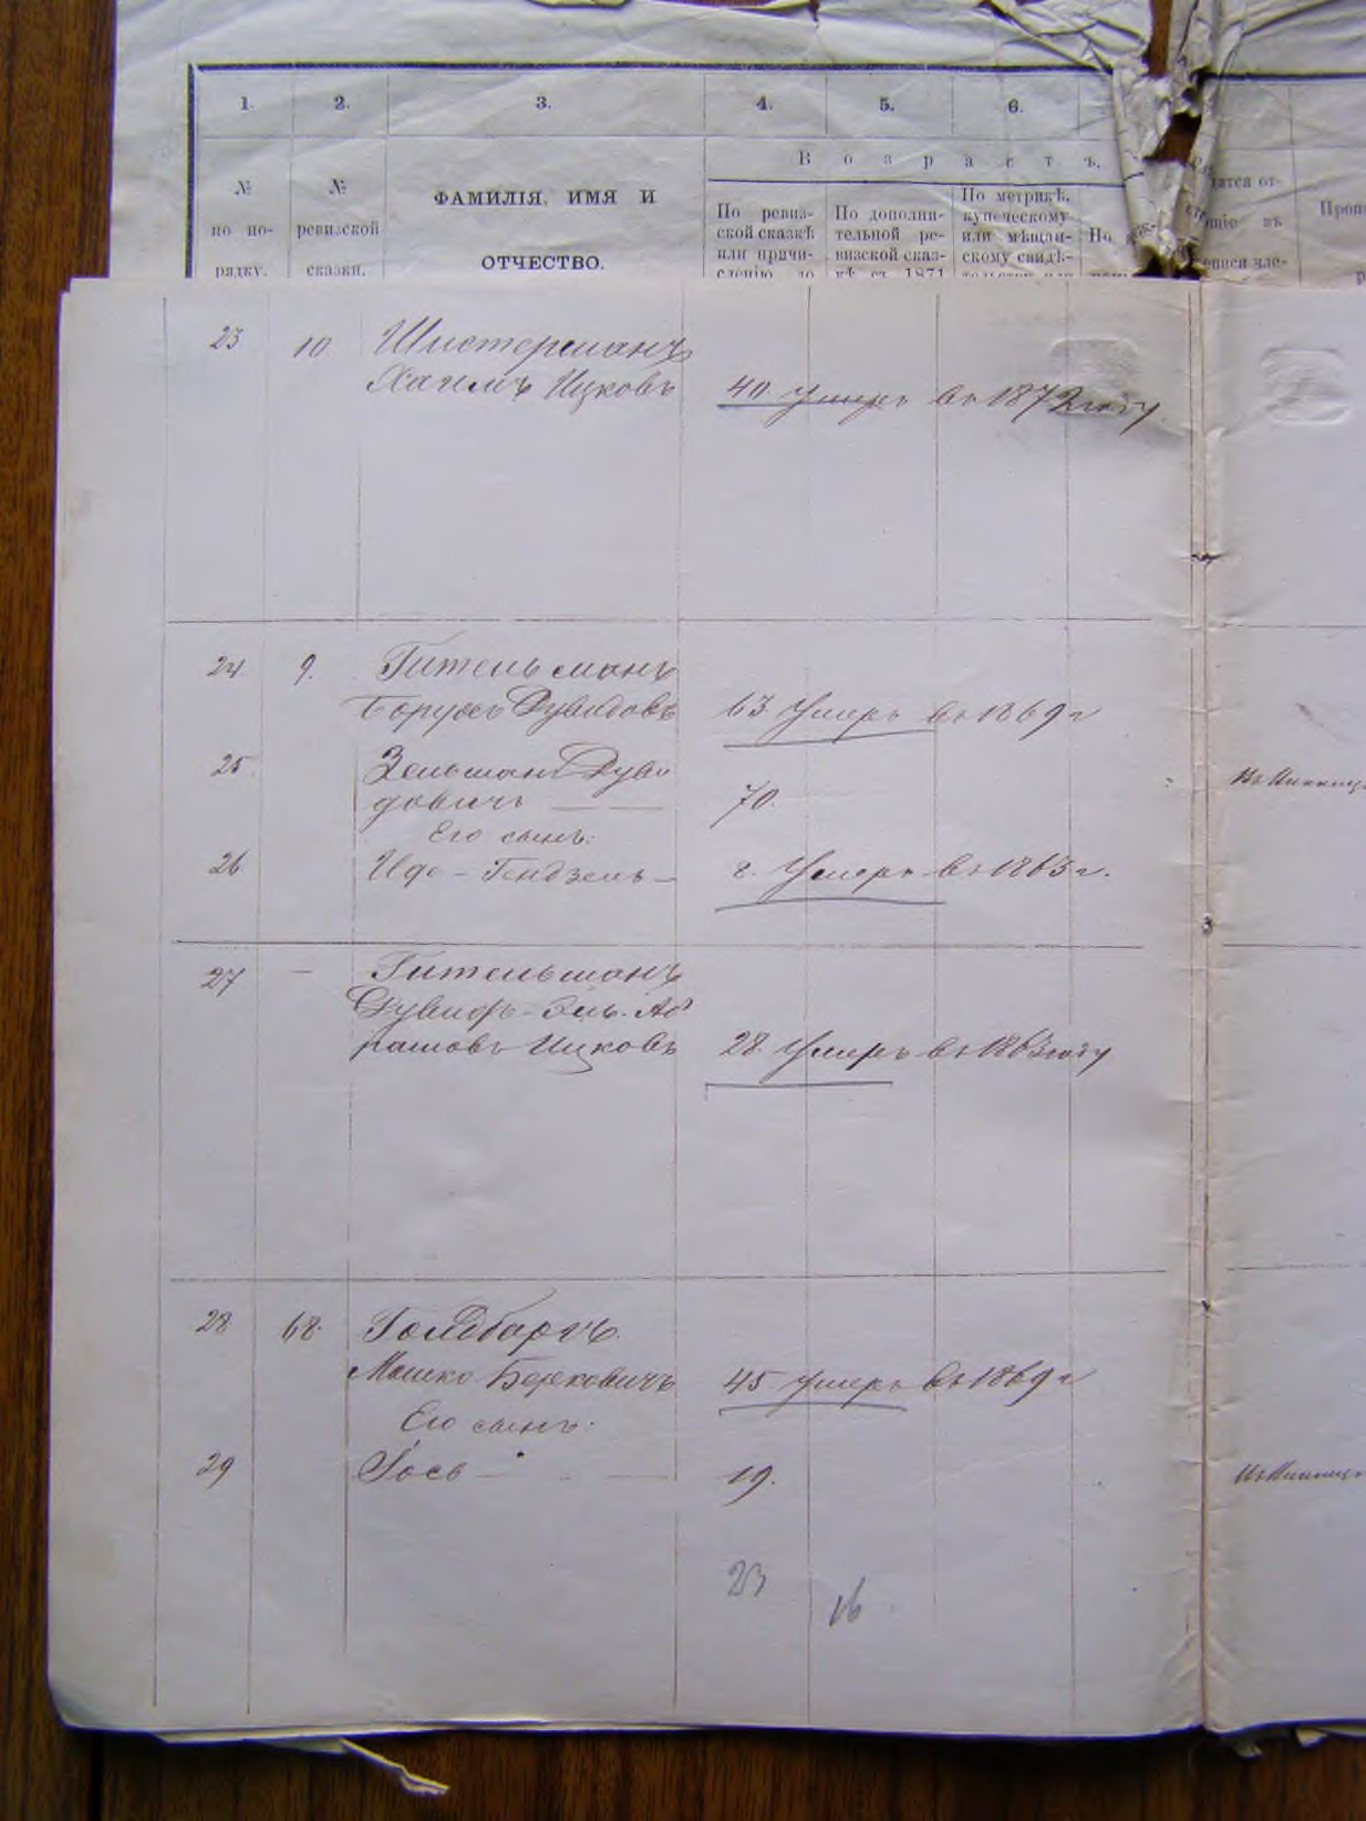 1. 2. 3. 4. 5. 6.
В о з р а с т ъ.
№ по по-рядку.
№ ревизской сказки.
ФАМИЛІЯ, ИМЯ И
ОТЧЕСТВО.
По ревиз-
ской сказкѣ
или причи-
сленію до
По дополни-
тельной ре-
визской сказ-
кѣ съ 1871
По метрикѣ,
купеческому
или мѣщан-
скому свидѣ-
По
23 10 Шистерманъ
Хаимъ Ицковъ 40. Умеръ въ 1872 году
24 9. Гительманъ
Борухъ Дувидовъ 63 Умеръ въ 1869 г
25 Зельманъ Дуви
довичъ — 70.
Его сынъ:
26 8. Умеръ въ 1863 г.
27 — Гительманъ
Дувидъ Аб
рамовъ Ицковъ 28. Умеръ въ 1863 году
28 68. Голдбаргъ
Мошко Берковичъ 45 Умеръ въ 1869 г
Его сынъ.
29 Іось — 19.
23 16